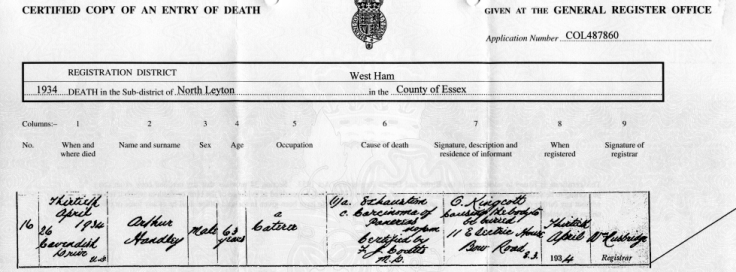 CERTIFIED COPY OF AN ENTRY OF DEATH
GIVEN AT THE GENERAL REGISTER OFFICE
Application Number COL487860
REGISTRATION DISTRICT West Ham
1934 DEATH in the Sub-district of North Leyton in the County of Essex
Columns:– 1 2 3 4 5 6 7 8 9
No. When and where died Name and surname Sex Age Occupation Cause of death Signature, description and residence of informant When registered Signature of registrar
16
Thirtieth
April
1934
26
Cavendish
Drive
Arthur
Handley
Male
63
years
a
Caterer
Exhaustion
c. Carcinoma of
Pancreas
Certified by
M.D.
causing the body to
be buried
11 Electric House
Bow Road
E.3.
Thirtieth
April
1934
Registrar